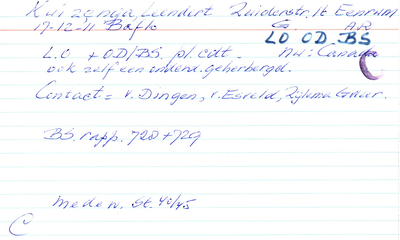 Huizenga, Leendert Zuiderstr. 1t Eenrum
17-12-11 Baflo G AR
LO OD BS
L.O. + OD/BS. pl. cdt. nu: Canada
ook zelf een onderd. geherbergd.
Contact = v. Dingen, v. Esveld,
BS. rapp. 728 + 729
medew. St. 40/45
C